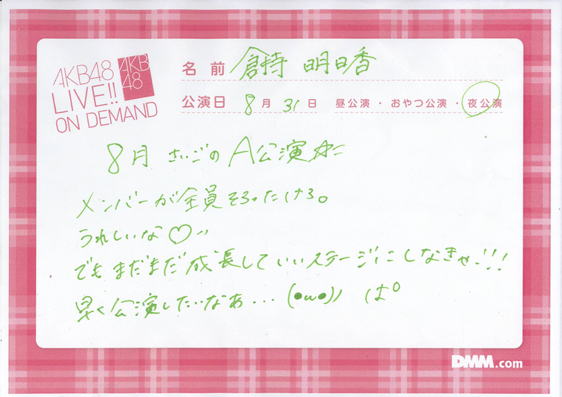 AKB48
LIVE!!
ON DEMAND
AKB
48
名前 倉持 明日香
公演日 8月 31日 昼公演・おやつ公演・夜公演
8月 さいごの A公演
メンバーが全員そろったけろ。
うれしいな♡
でもまだまだ成長していいステージにしなきゃ!!!
早く公演したいなあ・・・ (●ω●)ノ ぱ°
DMM.com